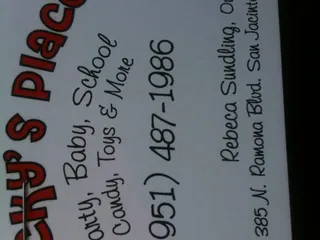 cky's Place
arty, Baby, School
Candy, Toys & More
951) 487-1986
Rebeca Sundling, O
385 N. Ramona Blvd. San Jacint